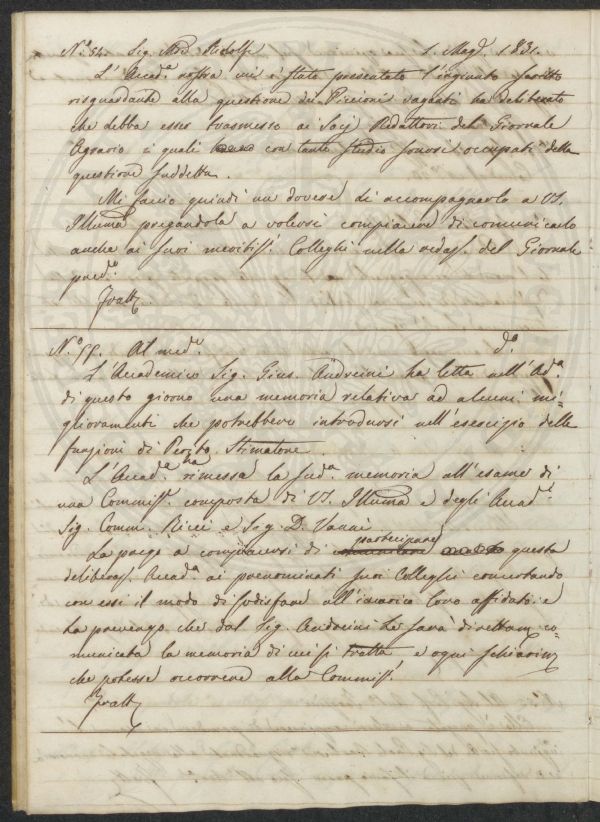 N.° 54. Sig. March. Ridolfi 1. Mag.° 1831.
L'Accad.a nostra cui è stato presentato l'ingiunto scritto
risguardante alla questione dei Piccioni vaganti ha deliberato
che debba esser trasmesso ai Socj Redattori del Giornale
Agrario i quali con tanto studio sonosi occupati della
questione suddetta.
Mi faccio quindi un dovere di accompagnarlo a VS.
Illuma pregandola a volersi compiacere di comunicarlo
anche ai suoi meritiss.i Colleghi nella redaz.e del Giornale
pred.o
Fratt.
N.° 55. Al med.o d.o
L'Accademico Sig. Gius. Andreini ha letta nell'Ad.a
di questo giorno una memoria relativa ad alcuni mi=
glioramenti che potrebbero introdursi nell'esercizio delle
funzioni di Perito Stimatore.
L'Accad.a ha rimessa la sud.a memoria all'esame di
una Commiss.e composta di VS. Illuma e degli Accad.i
Sig. Comm. Ricci e Sig. D. Vanni
La prego a compiacersi di partecipare questa
deliberaz. Accad.a ai prenominati suoi Colleghi concertando
con essi il modo di sodisfare all'incarico loro affidato: e
La prevengo che dal Sig. Andreini Le sarà direttam. co=
municata la memoria di cui si tratta e ogni schiarim.
che potesse occorrere alla Commiss.e
Fratt.